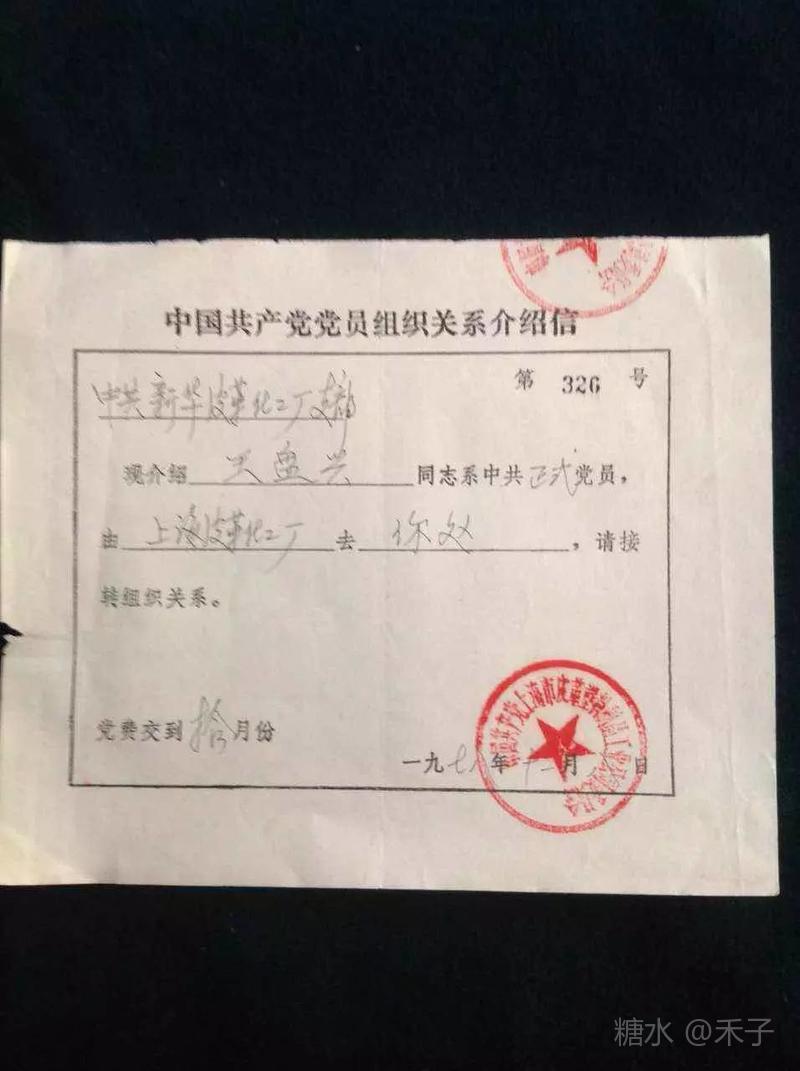 中国共产党党员组织关系介绍信
第 326 号
中共新华皮革化工厂支部
现介绍 王盘兴 同志系中共正式党员，
由 上海皮革化工厂 去 你处 ，请接
转组织关系。
党费交到拾月份
一九七八年十二月 日
中国共产党上海市皮革塑料制品工业公司委员会
糖水 @禾子